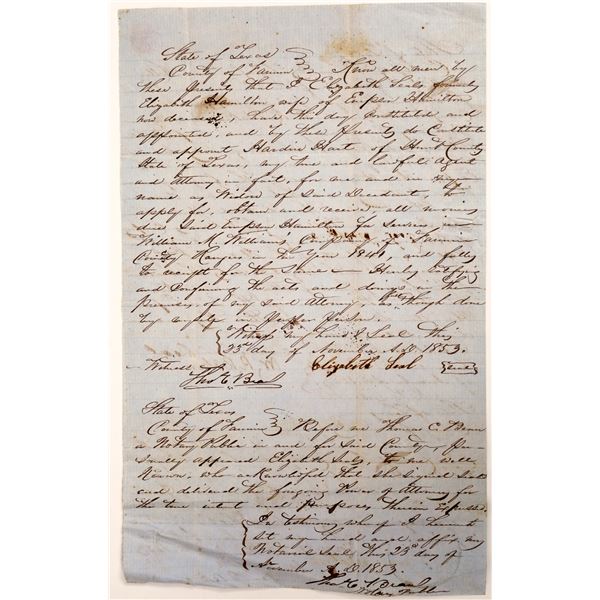 State of Texas
County of Fannin Know all men by
these Presents that I Elizabeth Seals formerly
Elizabeth Hamilton wife of Empson Hamilton
now deceased, have this day Instituted and
appointed, and by these Presents do Constitute
and appoint Hardin Hart of Hunt County
State of Texas my true and lawful Agent
and Attorney in fact, for me and in my
name as Widow of Said Decedant, to
apply for, obtain and receive all monies
due Said Empson Hamilton for Services in
William M Williams Company of Fannin
County Rangers in the Year 1841, and fully
to receipt for the Same Hereby ratifying
and Confirming the acts and doings in the
premises, of my Said Attorney, as though done
by myself in Proper Person.
Witness my hand & Seal this
23rd day of November A.D. 1853.
Elizabeth Seal Seal
Witness
Thos C Bean
State of Texas
County of Fannin Before me Thomas C. Bean
a Notary Public in and for Said County per-
sonally appeared Elizabeth Seals to me well
Known, who acknowledged that she signed Seald
and delivered the foregoing Power of Attorney for
the true intent and purposes therein Expressed.
In testimony whereof I hereunto
set my hand and affix my
Notarial Seal this 23rd day of
November A.D. 1853.
Thos C Bean
Notary Public